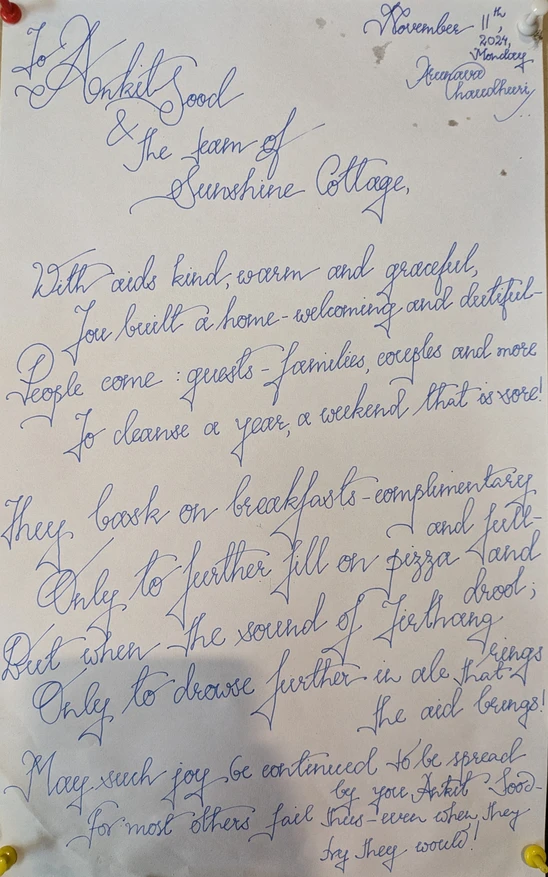 November 11th,
2024,
Monday
Arunava
Chaudhuri
To Ankit Sood
& the team of
Sunshine Cottage,
With aids kind, warm and graceful,
You built a home-welcoming and dutiful-
People come : guests-families, couples and more
To cleanse a year, a weekend that is sore!
They bask on breakfasts-complimentary
and full-
Only to further fill on pizza and
drool;
But when the sound of Tirthang
rings
Only to drowse further in ale that
the aid brings!
May such joy be continued to be spread
by you Ankit Sood-
For most others fail thus-even when they
try they would!